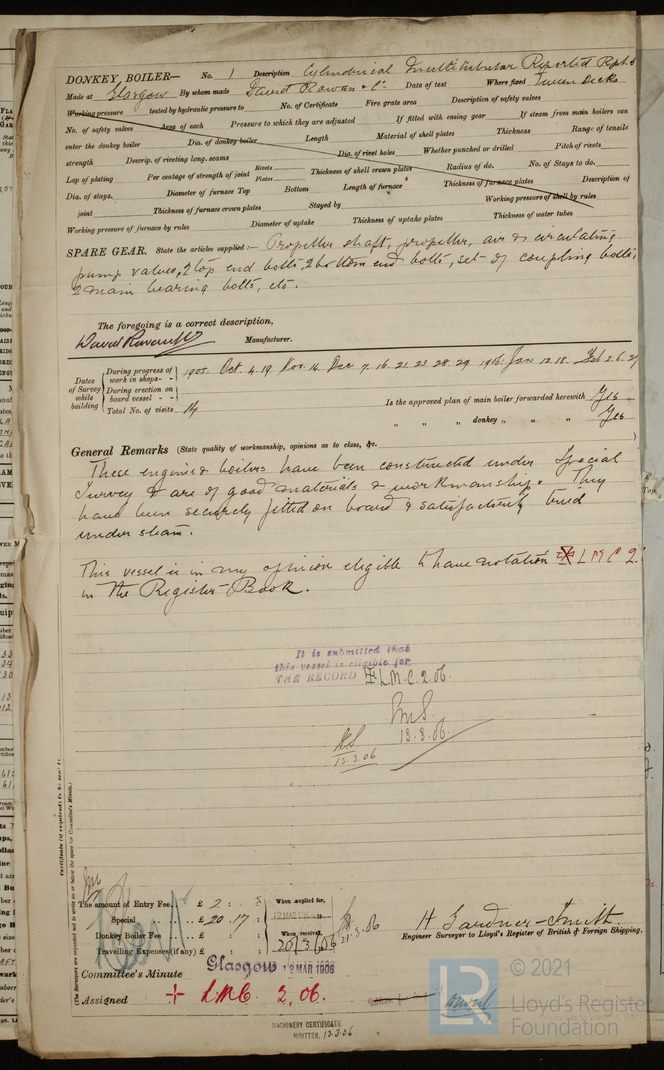 DONKEY BOILER— No. 1 Description Cylindrical Multitubular Reported Rpt. 5
Made at Glasgow By whom made David Rowan & Co Date of test Where fixed Tween Decks
Working pressure tested by hydraulic pressure to No. of Certificate Fire grate area Description of safety valves
No. of safety valves Area of each Pressure to which they are adjusted If fitted with easing gear If steam from main boilers can
enter the donkey boiler Dia. of donkey boiler Length Material of shell plates Thickness Range of tensile
strength Descrip. of riveting long. seams Dia. of rivet holes Whether punched or drilled Pitch of rivets
Lap of plating Per centage of strength of joint Rivets Plates Thickness of shell crown plates Radius of do. No. of Stays to do.
Dia. of stays. Diameter of furnace Top Bottom Length of furnace Thickness of furnace plates Description of
joint Thickness of furnace crown plates Stayed by Working pressure of shell by rules
Working pressure of furnace by rules Diameter of uptake Thickness of uptake plates Thickness of water tubes
SPARE GEAR. State the articles supplied:— Propeller shaft, propeller, air & circulating
pump valves, 2 top end bolts, 2 bottom end bolts, set of coupling bolts,
2 main bearing bolts, etc.
The foregoing is a correct description,
David Rowan & Co Manufacturer.
Dates of Survey while building
During progress of work in shops - - 1905. Oct. 4. 19. Nov. 14. Dec 7. 16. 21. 23 28. 29 1906. Jan 12. 18. Feb 2. 6. 27
During erection on board vessel - - -
Total No. of visits 14
Is the approved plan of main boiler forwarded herewith Yes
" " " donkey " " " Yes
General Remarks (State quality of workmanship, opinions as to class, &c.
These engines & boilers have been constructed under Special
Survey & are of good materials & workmanship. They
have been securely fitted on board & satisfactorily tried
under steam.
This vessel is in my opinion eligible to have notation L M C 2.
in the Register Book.
It is submitted that
this vessel is eligible for
THE RECORD L.M.C. 2. 06.
13.3.06
13.3.06
Certificate (if required) to be sent to
(The Surveyors are requested not to write on or below the space for Committee's Minute.)
The amount of Entry Fee .. £ 2 : :
Special .. .. .. £ 20 . 17 :
Donkey Boiler Fee .. .. £ : :
Travelling Expenses (if any) £ : :
When applied for,
12 MAR 1906
When received,
20/3/06
21.3.06
H. Gardner-Smith.
Engineer Surveyor to Lloyd's Register of British & Foreign Shipping.
Committee's Minute Glasgow 12 MAR 1906
Assigned + L.M.C. 2, 06.
MACHINERY CERTIFICATE
WRITTEN. 13.3.06
LR © 2021
Lloyd's Register
Foundation